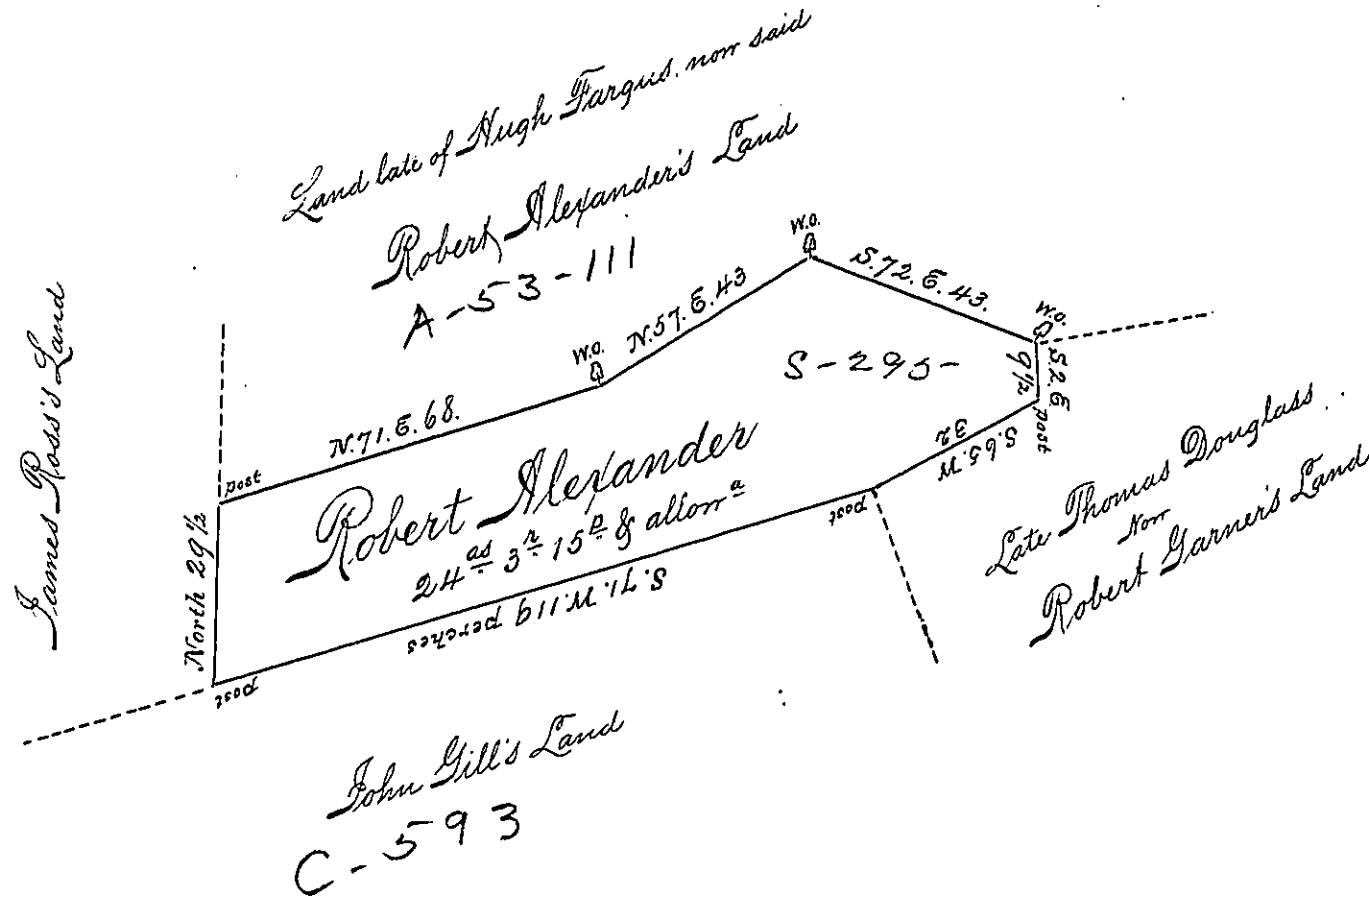 Land late of Hugh Fargus. now said
Robert Alexander's Land
A-53-111
James Ross's Land
W.O.
S.72.E.43.
W.O.
N.57.E.43
W.O.
S-295-
S2.E
9½
post
N.71.E.68.
post
S.65.W
32
Robert Alexander
24 as 3 r 15 p & allow a
post
North 29½
S.71.W.119 perches
post
Late Thomas Douglass
Now
Robert Garner's Land
John Gill's Land
C-593